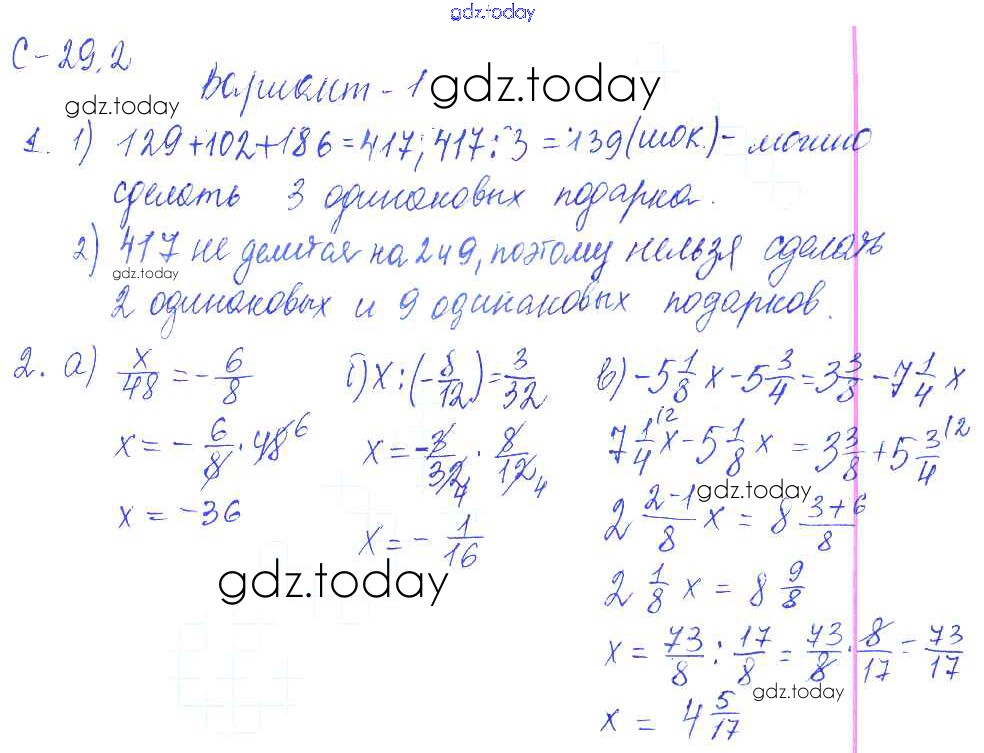 gdz.today
С-29.2
Вариант-1 gdz.today
gdz.today
1. 1) 129+102+186=417; 417:3=139(шок.)- можно
сделать 3 одинаковых подарка.
2) 417 не делится на 2 и 9, поэтому нельзя сделать
gdz.today
2 одинаковых и 9 одинаковых подарков.
2. а) x/48 = -6/8
x = -6/8 · 48 6
x = -36
б) x : (-8/12) = 3/32
x = -3/32 4 · 8/12 4
x = -1/16
в) -5 1/8 x - 5 3/4 = 3 3/8 - 7 1/4 x
7 1/4 |2 x - 5 1/8 x = 3 3/8 + 5 3/4 |2
gdz.today
2 2-1/8 x = 8 3+6/8
2 1/8 x = 8 9/8
gdz.today
x = 73/8 : 17/8 = 73/8 · 8/17 = 73/17
gdz.today
x = 4 5/17